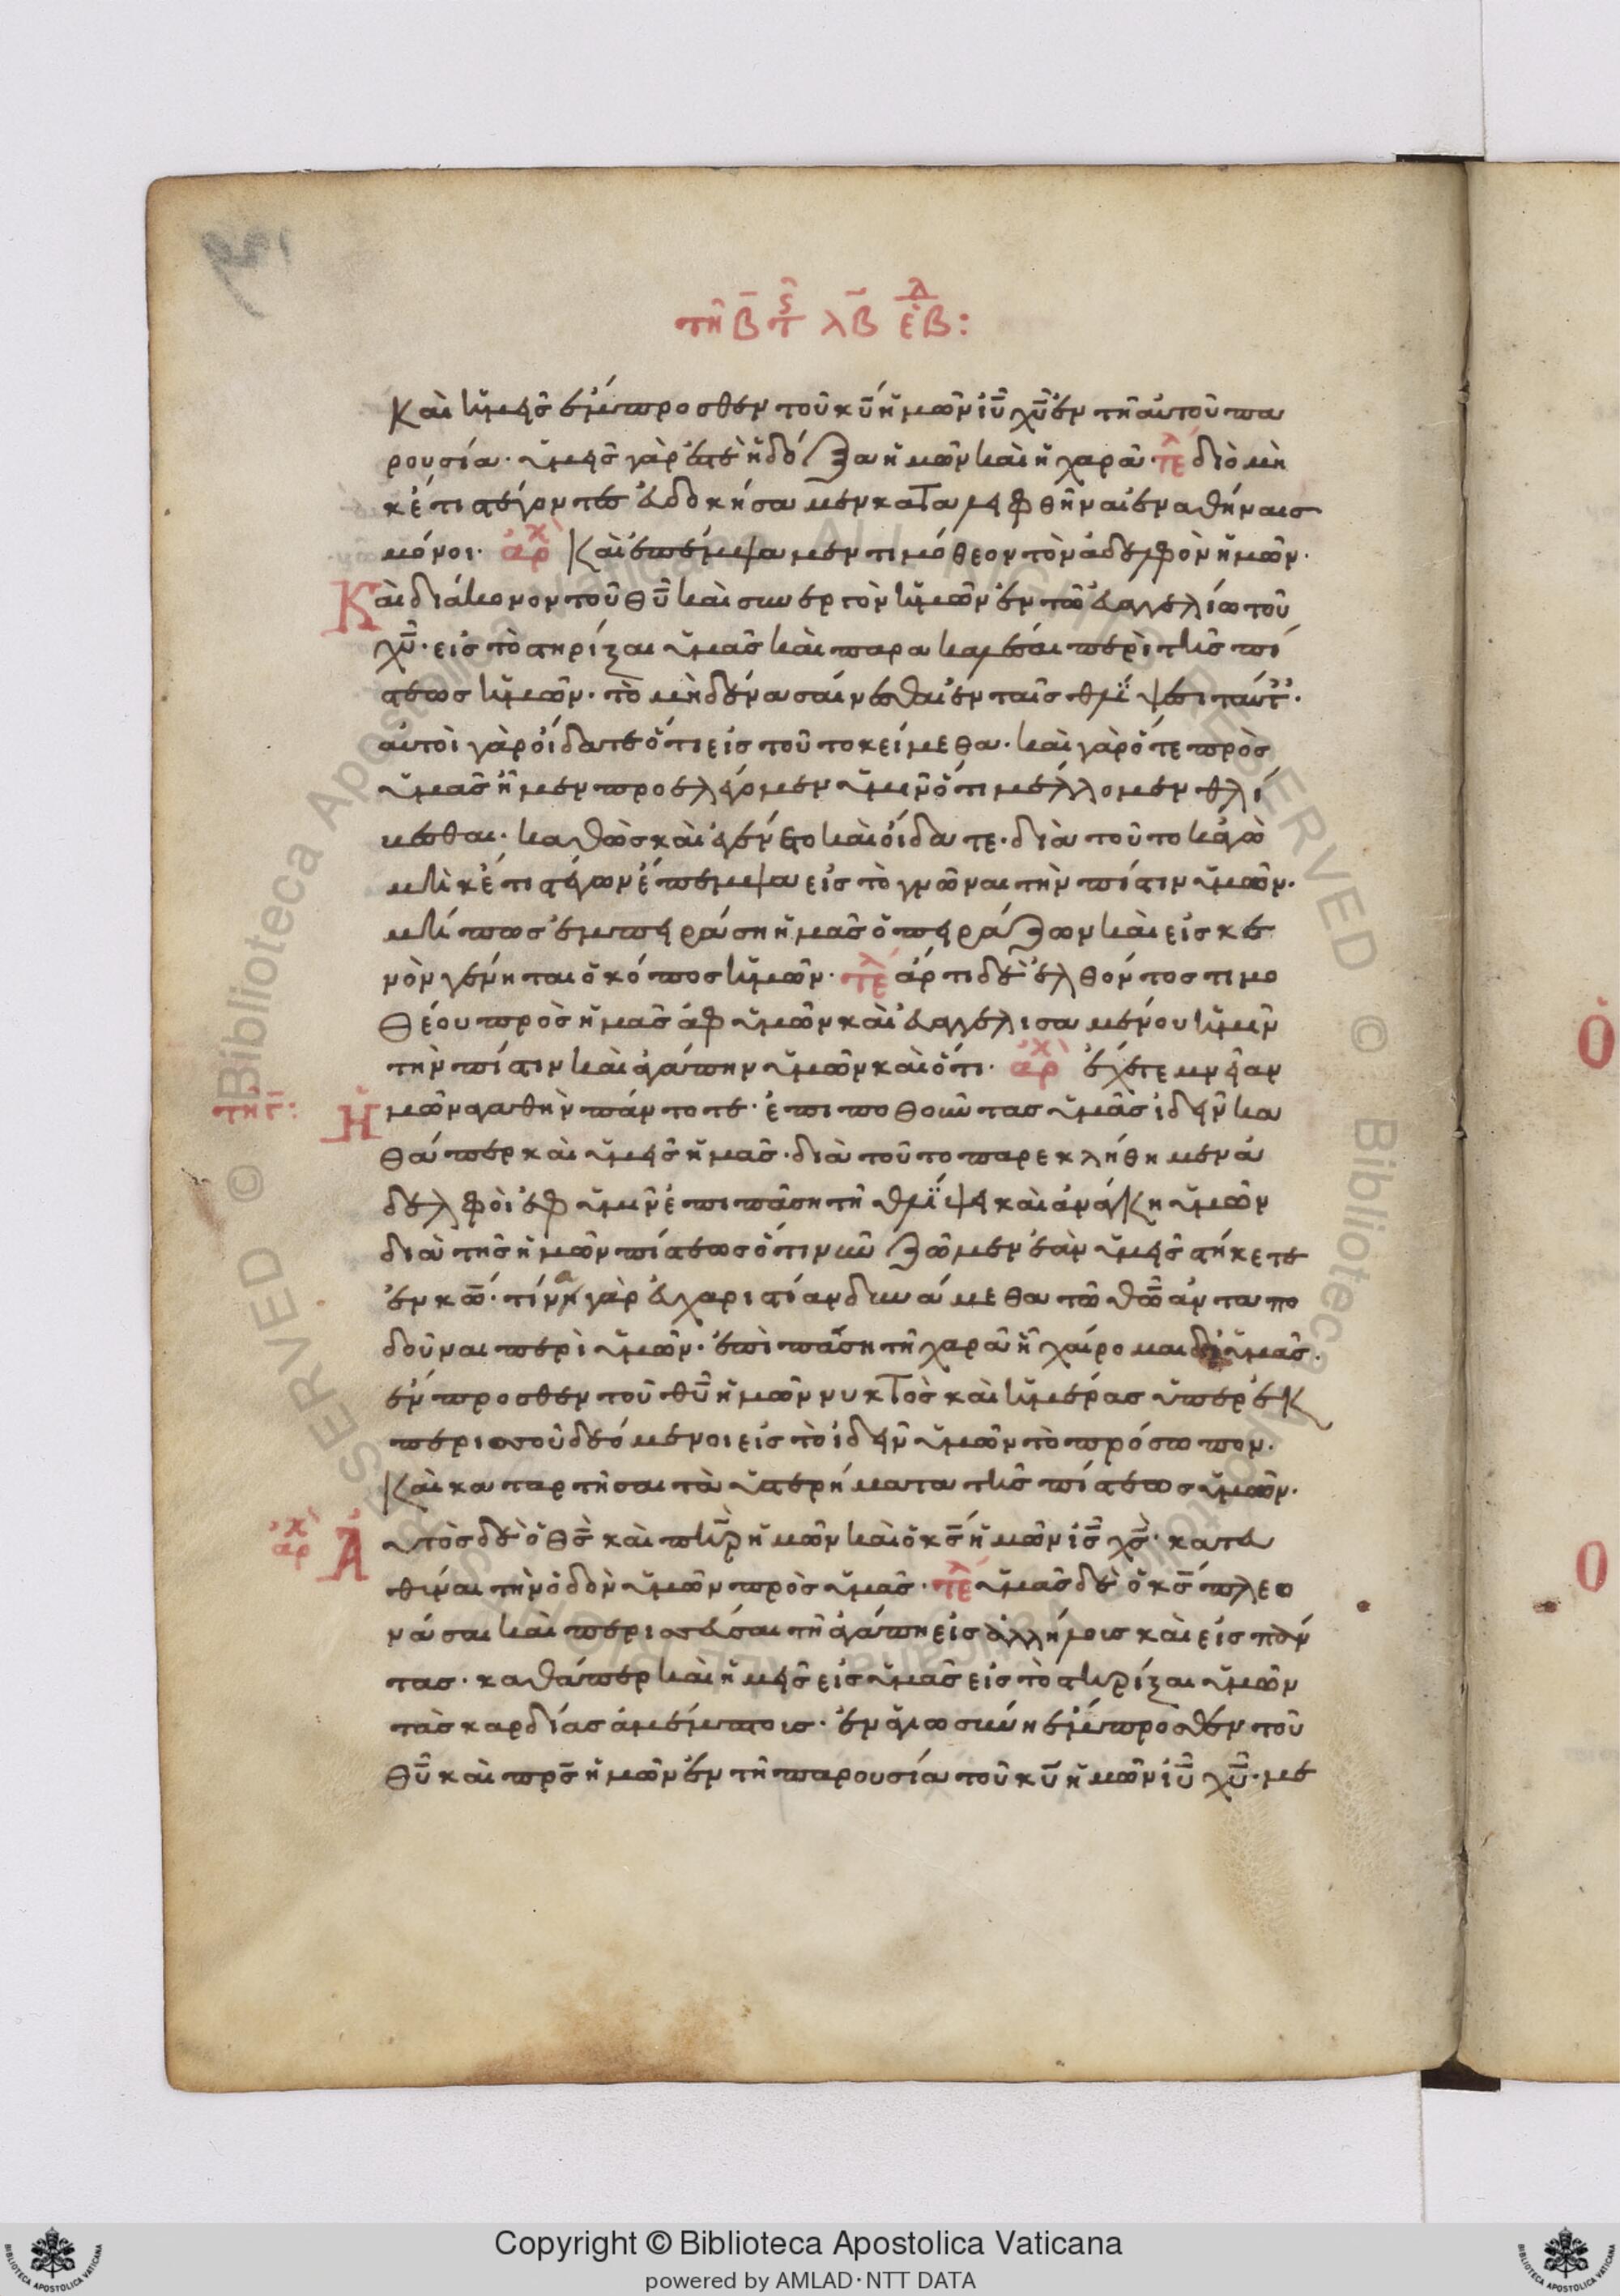 τῇ β̄ τ ϛ λβ̄ ἑβδ:
καὶ ὑμεῖς ἔμπροσθεν τοῦ κ̄υ ἡμῶν ῑυ χ̄υ ἐν τῇ αὐτοῦ πα
ρουσία· ὑμεῖς γὰρ ἐστὲ ἡ δόξα ἡμῶν καὶ ἡ χαρά· τελ διὸ μὴ
κέτι στέγοντες εὐδοκήσαμεν καταλειφθῆναι ἐν ἀθήναις
μόνοι· ἀρχ καὶ ἐπέμψαμεν τιμόθεον τὸν ἀδελφὸν ἡμῶν·
Καὶ διάκονον τοῦ θ̄υ καὶ συνεργὸν ἡμῶν ἐν τῶ εὐαγγελίω τοῦ
χ̄υ· εἰς τὸ στηρίξαι ὑμᾶς καὶ παρακαλέσαι περὶ τῆς πί
στεως ὑμῶν· τὸ μηδένα σαίνεσθαι ἐν ταῖς θλίψεσι ταύτ·
αὐτοὶ γὰρ οἴδατε ὅτι εἰς τοῦτο κείμεθα· καὶ γὰρ ὅτε πρὸς
ὑμᾶς ἦμεν προελέγομεν ὑμῖν ὅτι μέλλομεν θλί
βεσθαι· καθὼς καὶ ἐγένετο καὶ οἴδατε· διὰ τοῦτο κἀγὼ
μηκέτι στέγων ἔπεμψα εἰς τὸ γνῶναι τὴν πίστιν ὑμῶν·
μήπως ἐμπειράση ἡμᾶς ὁ πειράζων καὶ εἰς κε
νὸν γένηται ὁ κόπος ἡμῶν· τελ ἄρτι δὲ ἐλθόντος τιμο
θέου πρὸς ἡμᾶς ἀφ ὑμῶν καὶ εὐαγγελισαμένου ἡμῖν
τὴν πίστιν καὶ ἀγάπην ὑμῶν καὶ ὅτι· ἀρχ ἔχετε μνείαν
τῇ γ̄: Ἡμῶν ἀγαθὴν πάντοτε· ἐπιποθοῦντας ὑμᾶς ἰδεῖν κα
θάπερ καὶ ὑμεῖς ἡμᾶς· διὰ τοῦτο παρεκλήθημεν ἀ
δελφοὶ ἐφ ὑμῖν ἐπι πάση τῇ θλίψει καὶ ἀνάγκη ὑμῶν
διὰ τῆς ἡμῶν πίστεως ὅτι νῦν ζῶμεν ἐὰν ὑμεῖς στήκετε
ἐν κ̄ω· τίνα γὰρ εὐχαριστίαν δυνάμεθα τῶ θ̄ω ἀνταπο
δοῦναι περὶ ὑμῶν· ἐπὶ πάση τῇ χαρᾶ ἧ χαίρομαι δι ὑμᾶς·
ἔμπροσθεν τοῦ θ̄υ ἡμῶν νυκτὸς καὶ ἡμέρας ὑπὲρ ἐκ
περισσοῦ δεόμενοι εἰς τὸ ἰδεῖν ὑμῶν τὸ πρόσωπον·
Καὶ καταρτῆσαι τὰ ὑστερήματα τῆς πίστεως ὑμῶν·
ἀρχ Αὐτὸς δὲ ὁ θ̄ς καὶ π̄ηρ ἡμῶν καὶ ὁ κ̄ς ἡμῶν ῑς χ̄ς· κατευ
θύναι τὴν ὁδὸν ὑμῶν πρὸς ὑμᾶς· τελ ὑμᾶς δὲ ὁ κ̄ς πλεο
νάσαι καὶ περισσεύσαι τῇ ἀγάπη εἰς ἀλλήλους καὶ εἰς πάν
τας· καθάπερ καὶ ἡμεῖς εἰς ὑμᾶς εἰς τὸ στηρίξαι ὑμῶν
τὰς καρδίας ἀμέμπτους· ἐν ἁγιωσύνη ἔμπροσθεν τοῦ
θ̄υ καὶ π̄ρς ἡμῶν ἐν τῇ παρουσία τοῦ κ̄υ ἡμῶν ῑυ χ̄υ· με
Copyright © Biblioteca Apostolica Vaticana
powered by AMLAD·NTT DATA